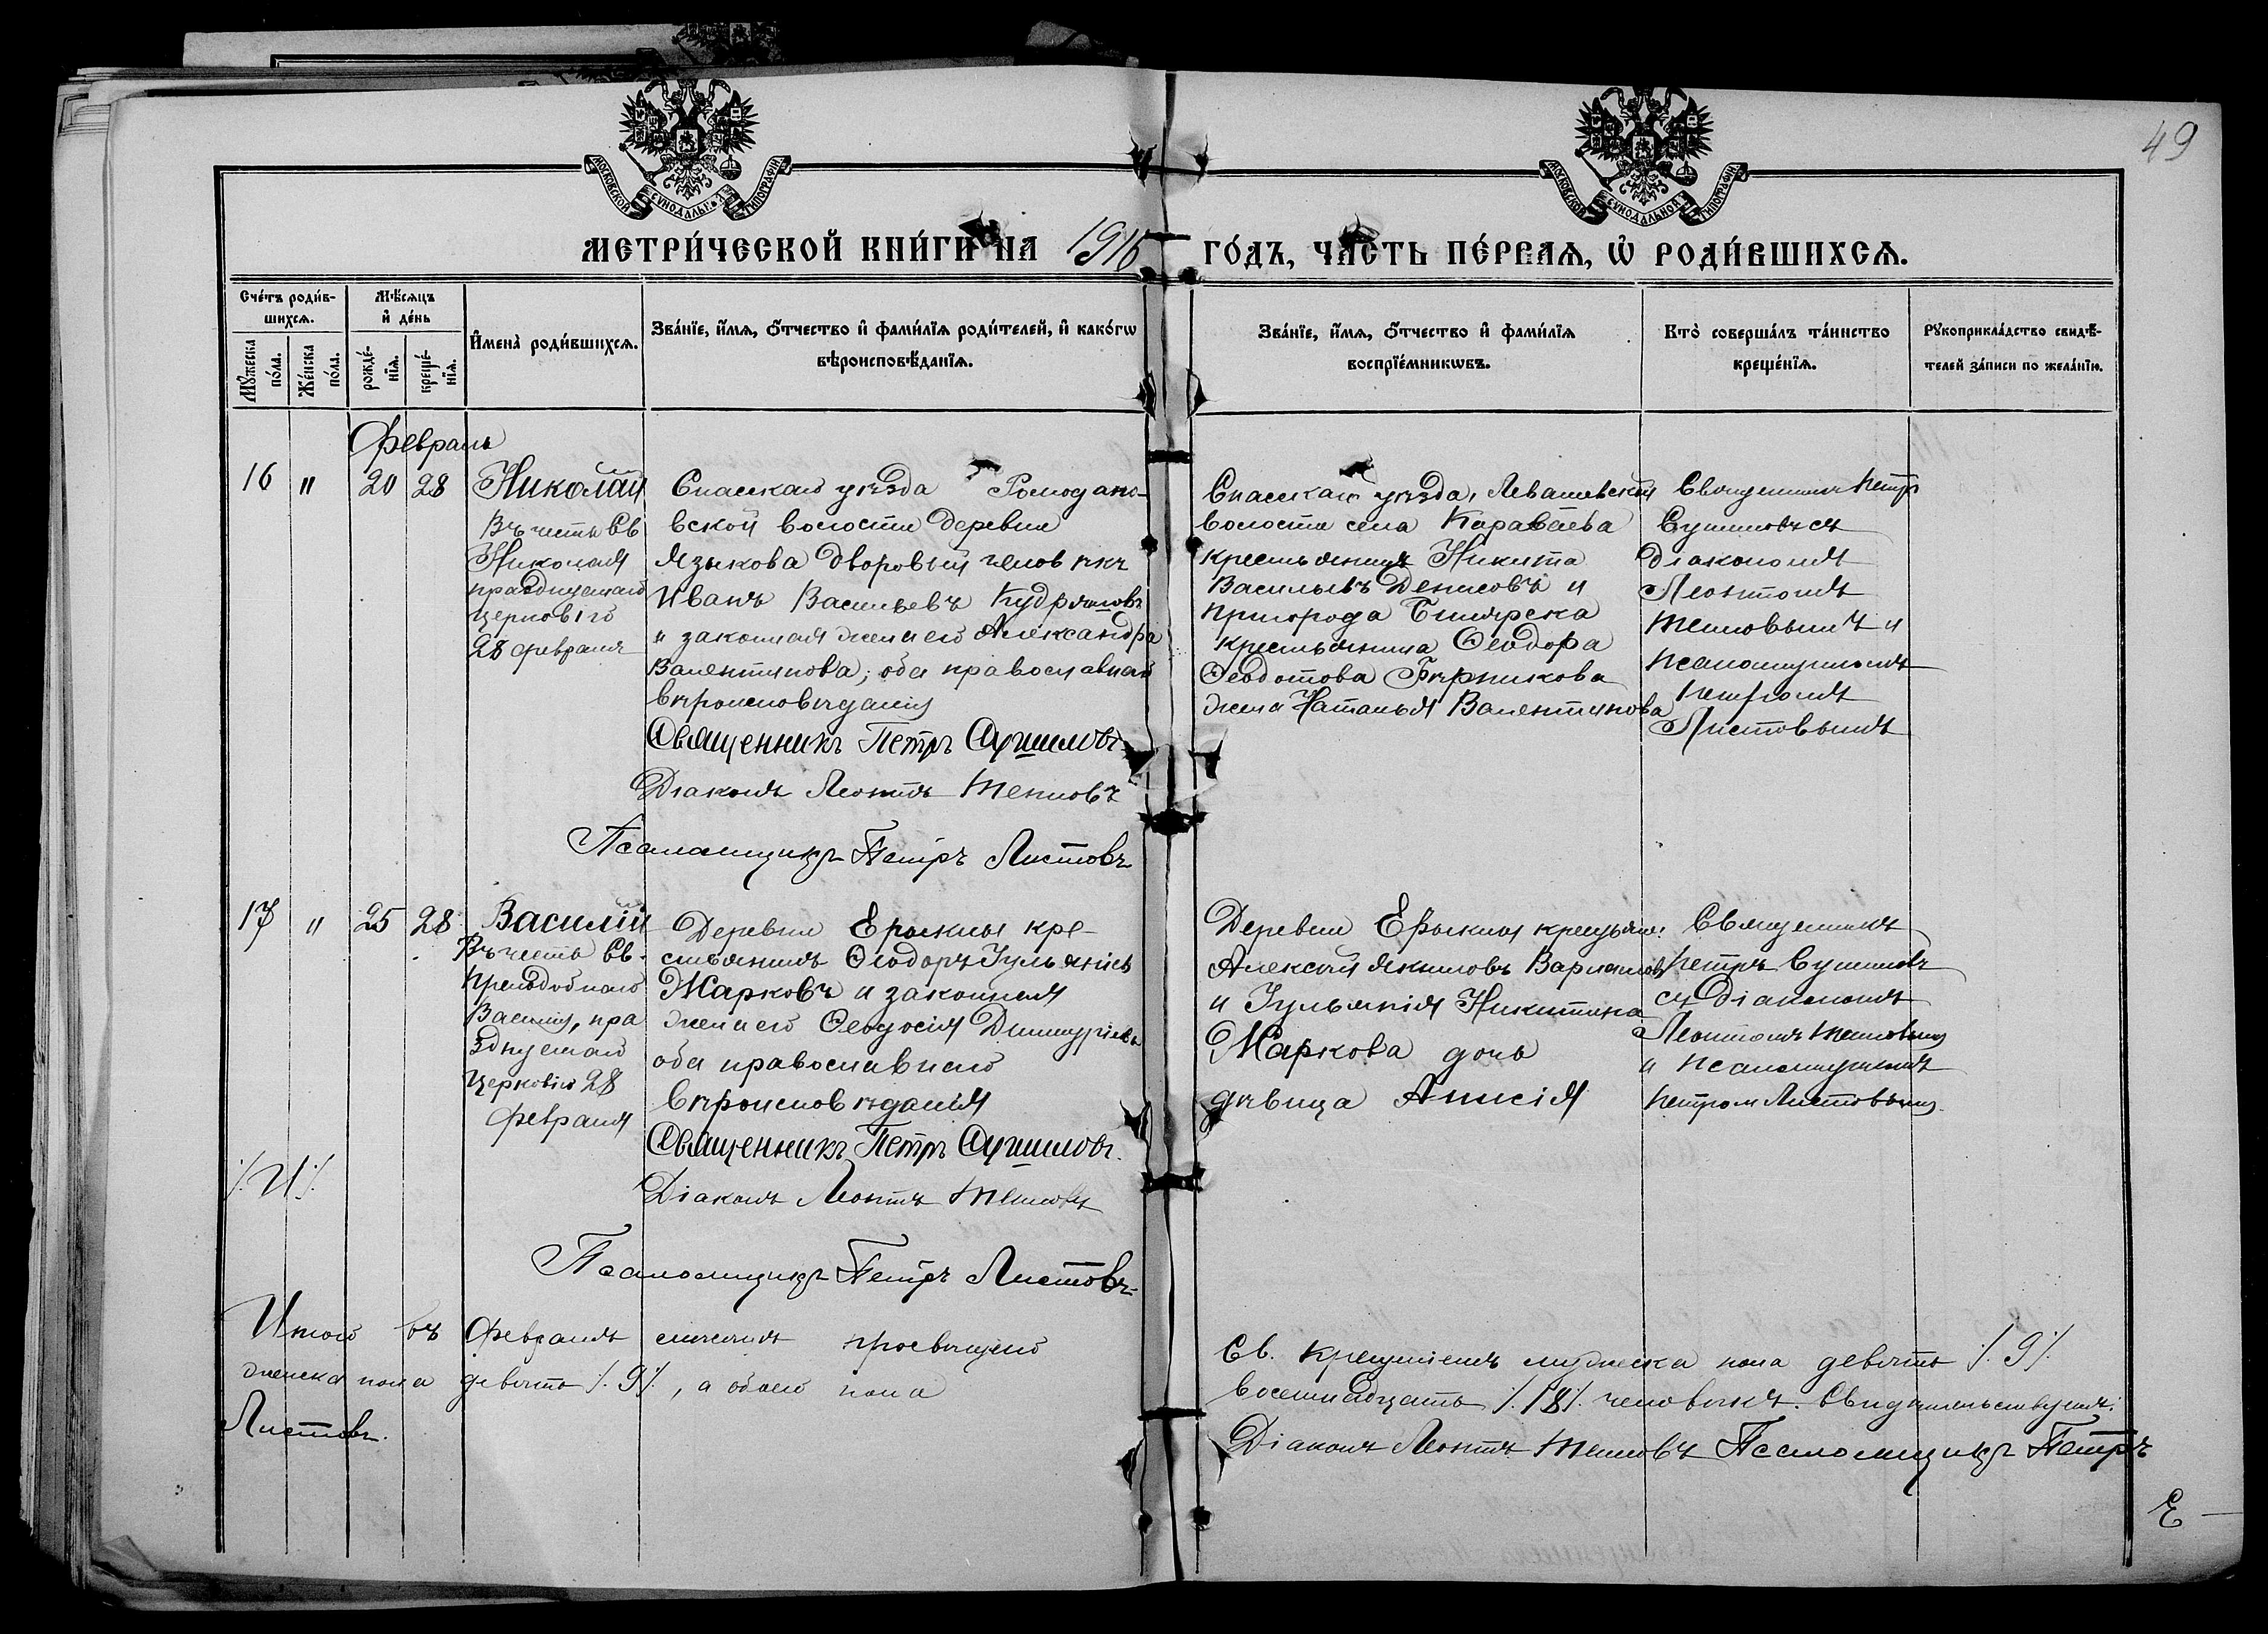 49
МОСКОВСКОЙ СѴНОДАЛЬНОЙ ТИПОГРАФІИ
МОСКОВСКОЙ СѴНОДАЛЬНОЙ ТИПОГРАФІИ
МЕТРИ́ЧЕСКОЙ КНИ́ГИ НА 1916 ГО́ДЪ, ЧА́СТЬ ПЕ́РВАѦ, Ѡ҆ РОДИ́ВШИХСѦ.
Сче́тъ роди́в-
шихсѧ.
Мꙋ́жеска по́ла.
Же́нска по́ла.
Мѣ́сѧцъ
и҆ де́нь
рожде́-
нїѧ.
креще́-
нїѧ.
И҆мена̀ роди́вшихсѧ.
Зва́нїе, и҆́мѧ, ѻ҆́тчество и҆ фами́лїѧ роди́телей, и҆ како́гѡ
вѣроисповѣ́данїѧ.
Зва́нїе, и҆́мѧ, ѻ҆́тчество и҆ фами́лїѧ
воспрїе́мникѡвъ.
Кто̀ соверша́лъ та́инство
креще́нїѧ.
Рꙋкоприкла́дство свидѣ́-
телей за́писи по жела́нїю.
Февраль
16 " 20 28
Николай
Въ честь Св
Николая
празднуемаго
церковію
28 февраля
Спасскаго уѣзда Ромодано-
вской волости деревни
Языкова дворовый человѣкъ
Иванъ Васильевъ Кудряшовъ
и законная жена его Александра
Валентинова; оба православнаго
вѣроисповѣданія
Священникъ Петръ Сушиловъ
Діаконъ Леонтъ Тепловъ
Псаломщикъ Петръ Листовъ
Спасскаго уѣзда, Левашевской
волости села Караваева
крестьянинъ Никита
Васильевъ Денисовъ и
пригорода Билярска
крестьянина Ѳеодора
Ѳеодотова
жена Наталья Валентинова
Священникъ Петръ
Сушиловъ съ
діакономъ
Леонтомъ
Тепловымъ и
псаломщикомъ
Петромъ
Листовымъ
17 " 25 28
Василій
Въ честь Св.
преподобнаго
Василія, пра
зднуемаго
церковію 28
февраля
Деревни Ерыклы кре-
стьянинъ Ѳеодоръ Іульяніевъ
Марковъ и законная
жена его Ѳеодосія Димитріева
оба православнаго
вѣроисповѣданія
Священникъ Петръ Сушиловъ.
Діаконъ Леонтъ Тепловъ
Псаломщикъ Петръ Листовъ
Деревни Ерыклы крестьян.
Алексѣй Якимовъ Варламовъ
и Іульянія Никитина
Маркова дочь
дѣвица Анисія
Священникъ
Петръ Сушиловъ
съ діакономъ
Леонтомъ Тепловымъ
и псаломщикомъ
Петромъ Листовымъ.
Итого въ Февралѣ мѣсяцѣ просвѣщено Св. Крещеніемъ мужеска пола девять /.9/.
женска пола девять /.9/., а обоего пола восемнадцать /.18/. человѣкъ. Свидѣтельствуемъ:
Діаконъ Леонтъ Тепловъ Псаломщикъ Петръ
Листовъ.